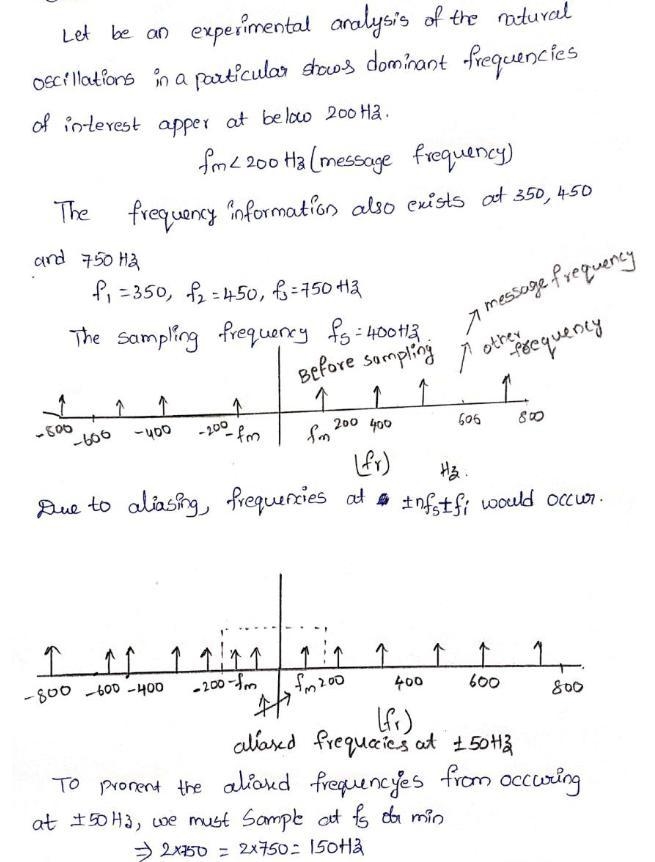 Let be an experimental analysis of the natural
oscillations in a particular shows dominant frequencies
of interest apper at below 200 Hz.
fm < 200 Hz (message frequency)
The frequency information also exists at 350, 450
and 750 Hz
f1 = 350, f2 = 450, f3 = 750 Hz
The sampling frequency fs = 400 Hz
message frequency
other frequency
Before sampling
-800 -600 -400 -200 -fm fm 200 400 600 800
(fr) Hz.
Due to aliasing, frequencies at ±nfs±fi would occur.
-800 -600 -400 -200 -fm fm 200 400 600 800
(fr)
aliased frequecies at ±50Hz
To pronent the aliased frequencyes from occuring
at ±50Hz, we must Sample at fs min
⇒ 2x750 = 2x750 = 150Hz